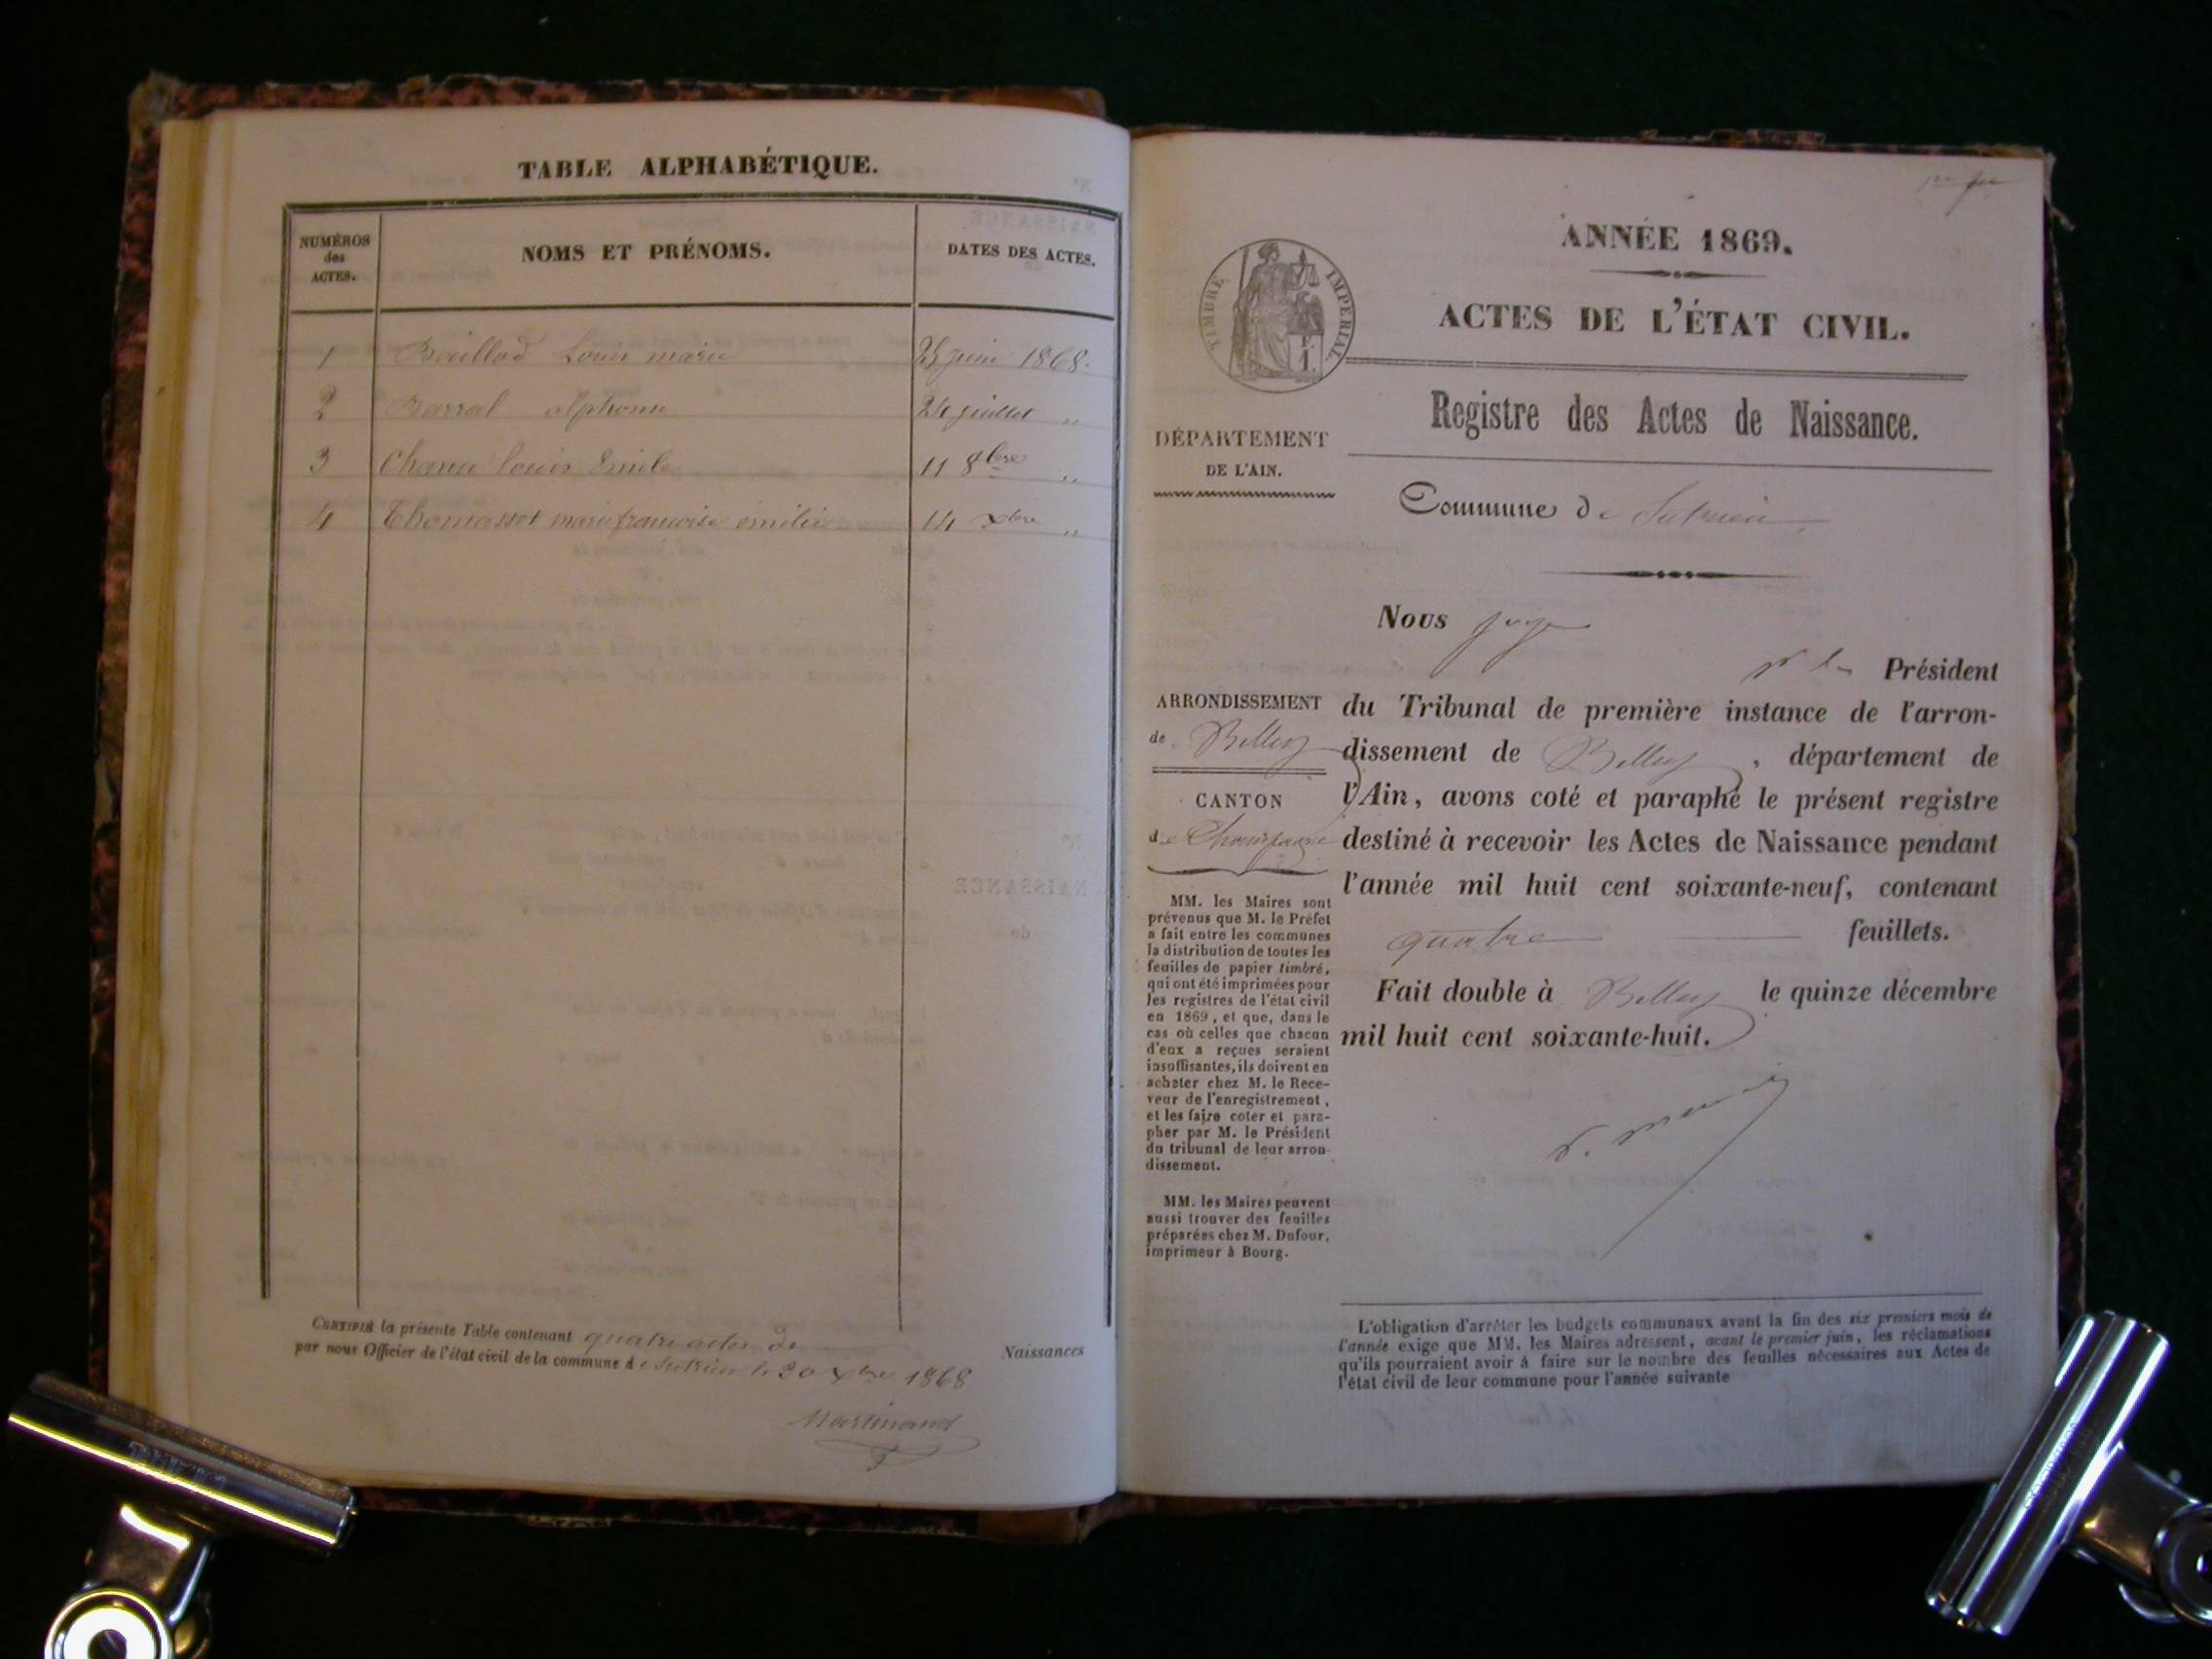 TABLE ALPHABÉTIQUE.
NUMÉROS
des
ACTES.
NOMS ET PRÉNOMS.
DATES DES ACTES.
1 Baillod Louis marie 25 juin 1868.
2 Barral alphonse 24 juillet "
3 Louis Emile 11 8bre "
4 Thomasset marie francoise emilie 14 xbre "
CERTIFIÉ la présente Table contenant quatre actes de Naissances
par nous Officier de l'état civil de la commune de Sutrieu le 30 xbre 1868
Martinand
ANNÉE 1869.
ACTES DE L'ÉTAT CIVIL.
TIMBRE IMPERIAL
1.
Registre des Actes de Naissance.
DÉPARTEMENT
DE L'AIN.
Commune de Sutrieu
Nous juge
Président
ARRONDISSEMENT
de Belley
CANTON
de Champagne
du Tribunal de première instance de l'arron-
dissement de Belley, département de
l'Ain, avons coté et paraphé le présent registre
destiné à recevoir les Actes de Naissance pendant
l'année mil huit cent soixante-neuf, contenant
quatre feuillets.
Fait double à Belley le quinze décembre
mil huit cent soixante-huit.
MM. les Maires sont
prévenus que M. le Préfet
a fait entre les communes
la distribution de toutes les
feuilles de papier timbré,
qui ont été imprimées pour
les registres de l'état civil
en 1869, et que, dans le
cas où celles que chacun
d'eux a reçues seraient
insuffisantes, ils doivent en
acheter chez M. le Rece-
veur de l'enregistrement,
et les faire coter et para-
pher par M. le Président
du tribunal de leur arron-
dissement.
MM. les Maires peuvent
aussi trouver des feuilles
préparées chez M. Dufour,
imprimeur à Bourg.
L'obligation d'arrêter les budgets communaux avant la fin des six premiers mois de
l'année exige que MM. les Maires adressent, avant le premier juin, les réclamations
qu'ils pourraient avoir à faire sur le nombre des feuilles nécessaires aux Actes de
l'état civil de leur commune pour l'année suivante